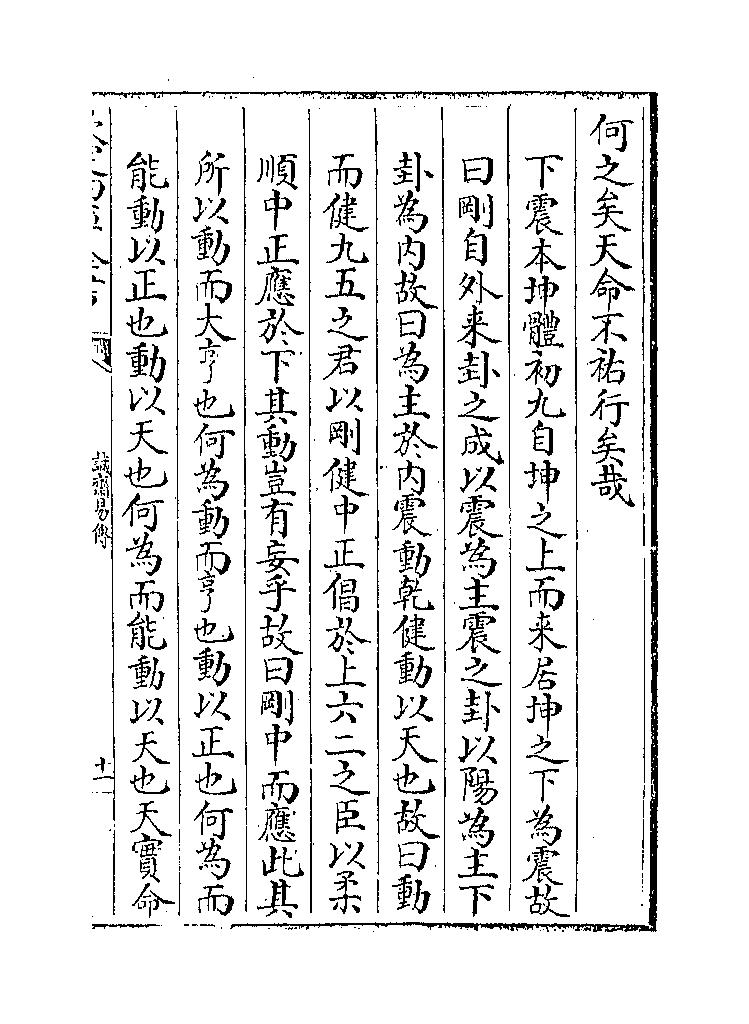 何之矣天命不祐行矣哉
下震本坤體初九自坤之上而来居坤之下為震故
曰剛自外来卦之成以震為主震之卦以陽為主下
卦為内故曰為主於内震動乾健動以天也故曰動
而健九五之君以剛健中正倡於上六二之臣以柔
順中正應於下其動豈有妄乎故曰剛中而應此其
所以動而大亨也何為動而亨也動以正也何為而
能動以正也動以天也何為而能動以天也天實命
誠齋易傳
十一